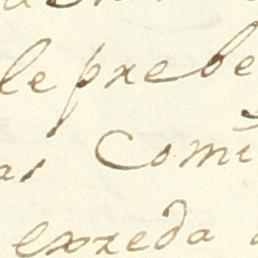 le prebe
as Comi
exreda